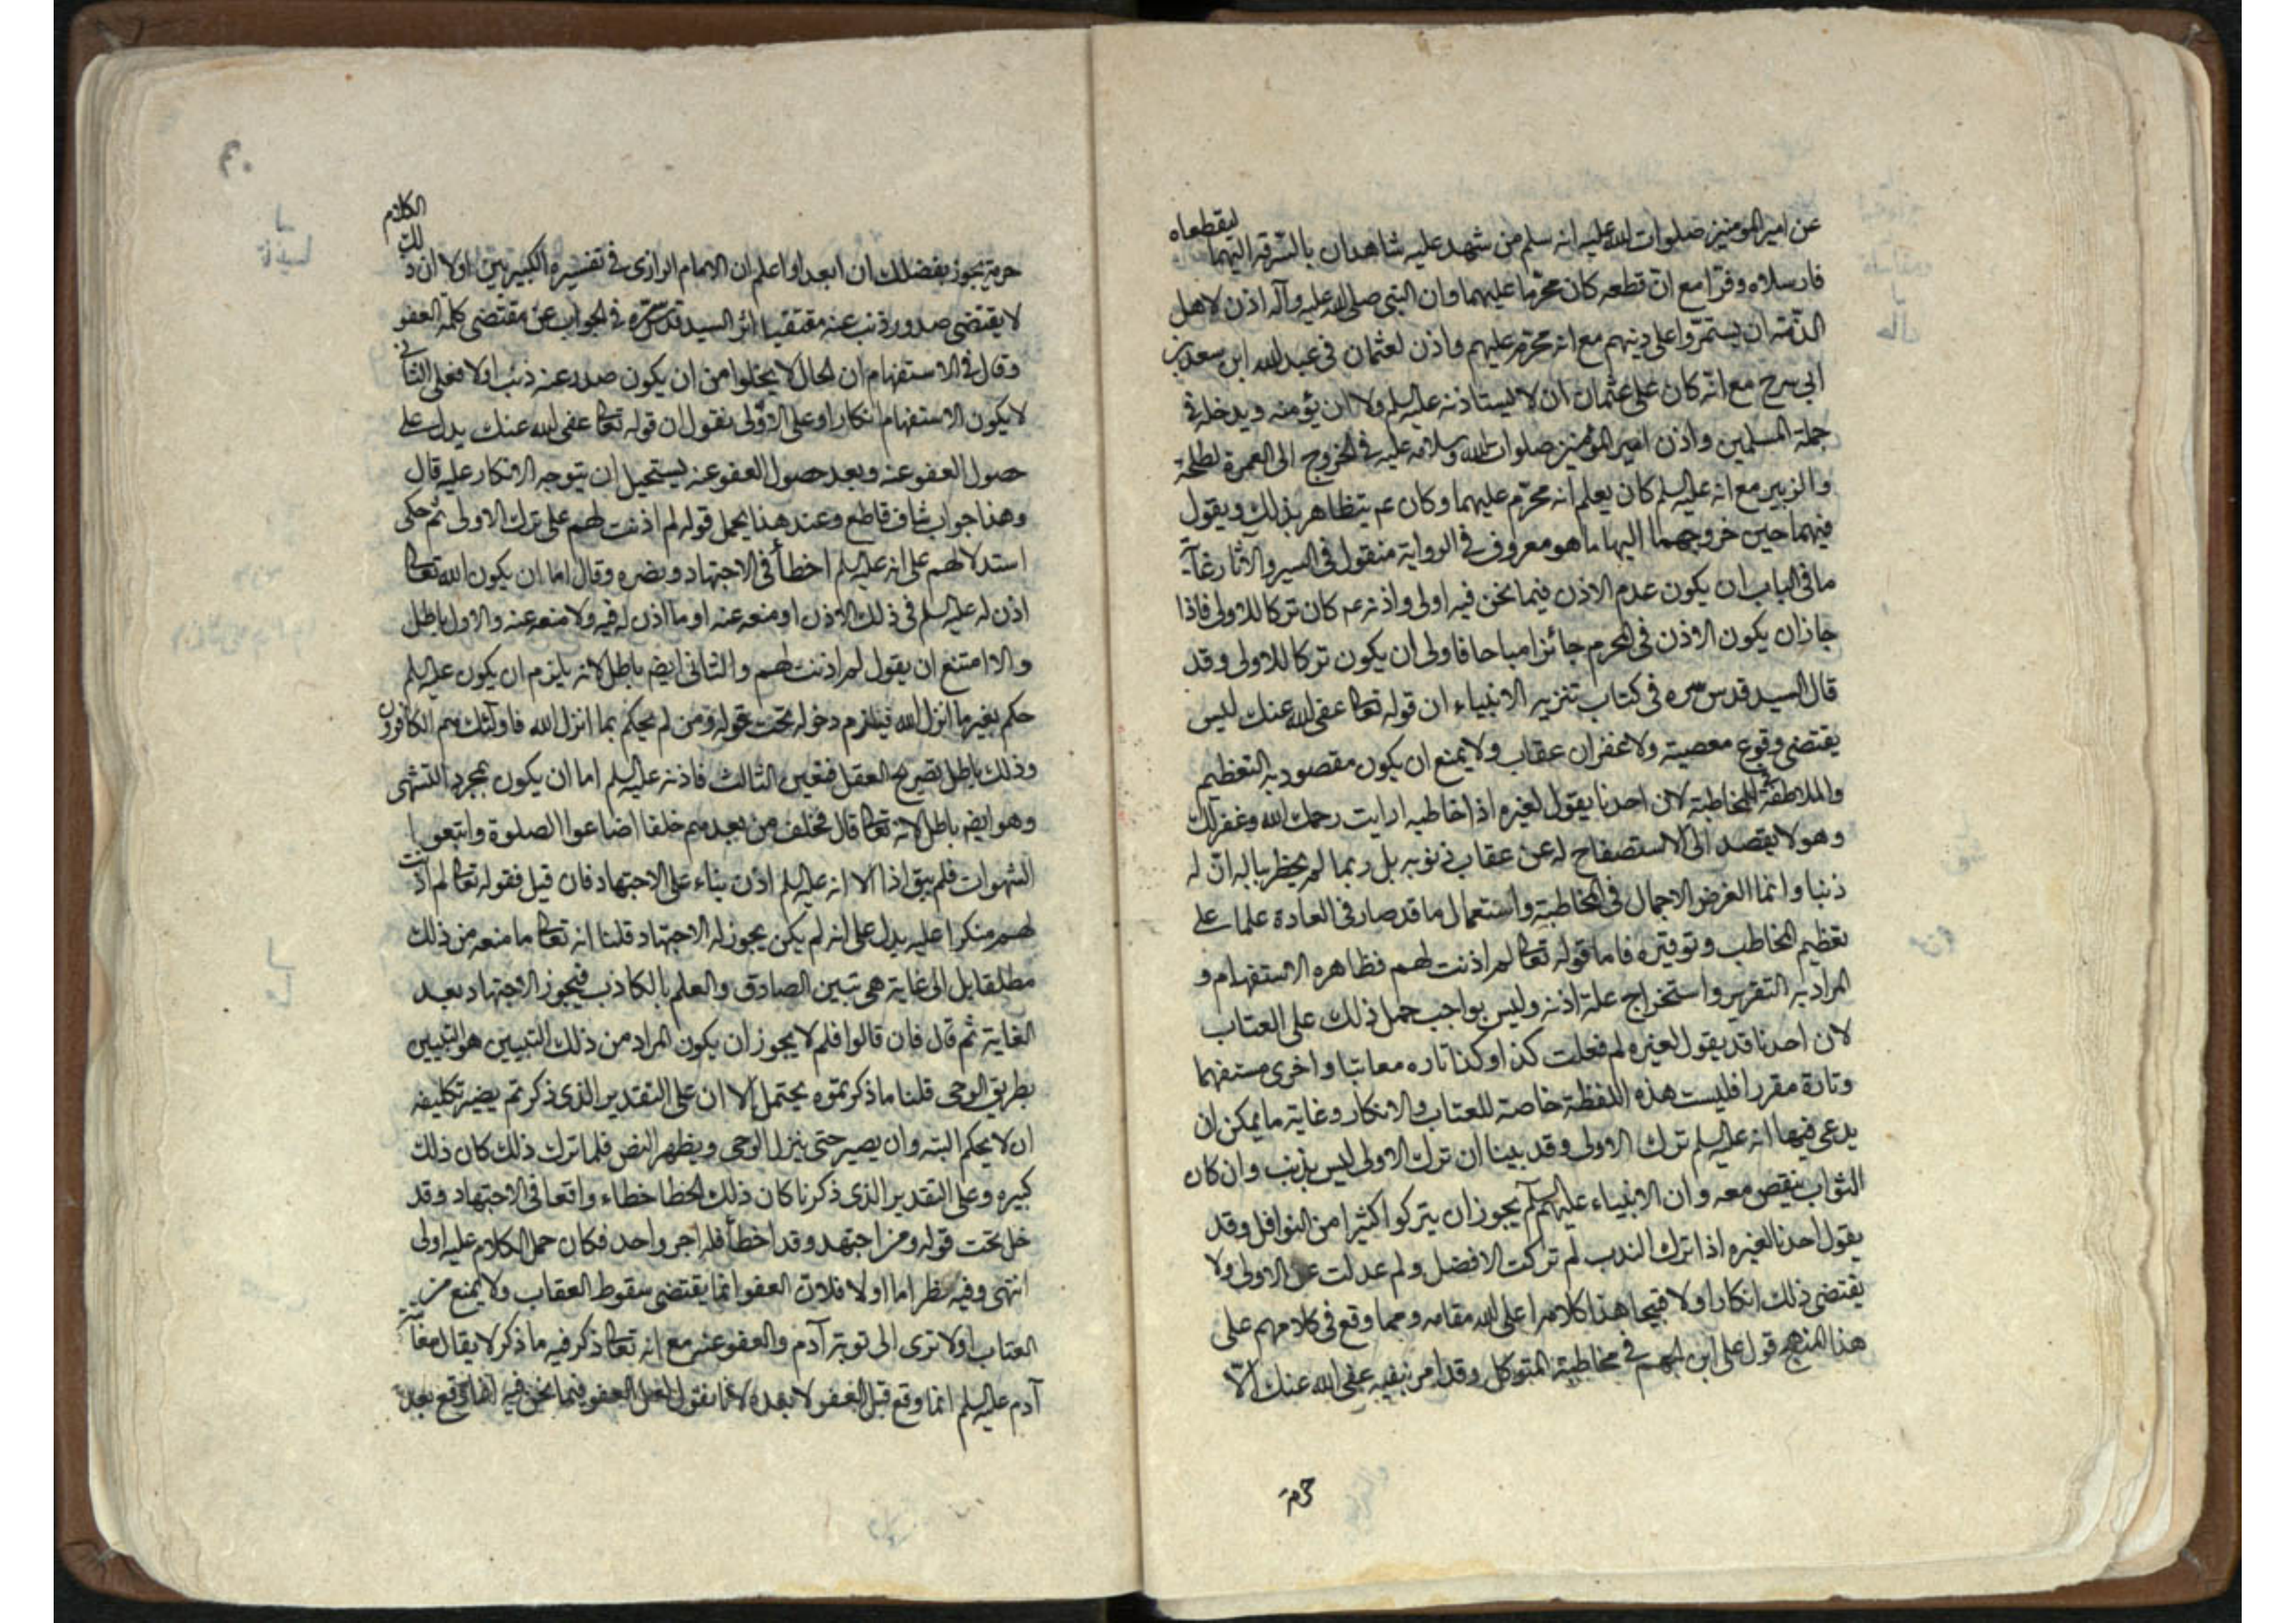 عن امير المومنين صلوات الله عليه انه سلم من شهد عليه شاهدان بالسرقة اليهما ليقطعاه
فارسلاه وفرّا مع انّ قطعه كان محرّما عليهما وان النبي صلى الله عليه وآله اذن لاهل
الذمّة ان يستمرّوا على دينهم مع انه محرّم عليهم واذن لعثمان في عبد الله ابن سعد بن
ابي سرح مع انّه كان على عثمان ان لا يستاذنه عليه السلم ولا ان يؤمنه ويدخله في
جملة المسلمين واذن امير المؤمنين صلوات الله وسلامه عليه في الخروج الى العمرة لطلحة
والزبير مع انه عليه السلم كان يعلم انه محرّم عليهما وكان عم يتظاهر بذلك ويقول
فيهما حين خروجهما اليها ما هو معروف في الرواية منقول في السير والآثار غاية
ما في الباب ان يكون عدم الاذن فيما نحن فيه اولى واذنه عم كان تركا للاولى فاذا
جاز ان يكون الاذن في المحرم جائزا مباحا فاولى ان يكون تركا للاولى وقد
قال السيد قدس سره في كتاب تنزيه الانبياء ان قوله تعا عفى الله عنك ليس
يقتضى وقوع معصية ولا غفران عقاب ولا يمنع ان يكون مقصود به التعظيم
والملاطفة للمخاطبة لان احدنا يقول لغيره اذا خاطبه ارايت رحمك الله وغفر لك
وهو لا يقصد الى الاستصفاح له عن عقاب ذنوبه بل ربما لم يخطر بباله انّ له
ذنبا وانما الغرض الاجمال في المخاطبة واستعمال ما قد صار في العادة علما على
تعظيم المخاطب وتوقيره فاما قوله تعا لم اذنت لهم فظاهره الاستفهام و
المراد به التقرير واستخراج علة اذنه وليس بواجب حمل ذلك على العتاب
لان احدنا قد يقول لغيره لم فعلت كذا وكذا تاره معاتبا واخرى مستفهما
وتارة مقررا فليست هذه اللفظة خاصة للعتاب والانكار وغاية ما يمكن ان
يدعى فيها انه عليه السلم ترك الاولى وقد بينا ان ترك الاولى ليس بذنب وان كان
الثواب ينقص معه وان الانبياء عليهم السلم يجوز ان يتركوا كثيرا من النوافل وقد
يقول احدنا لغيره اذا ترك الندب لم تركت الافضل ولم عدلت عن الاولى ولا
يقتضى ذلك انكارا ولا قبيحا هذا كلامه اعلى الله مقامه ومما وقع في كلامهم على
هذا المنهج قول على ابن الجهم في مخاطبة المتوكل وقد امر بنفيه عفى الله عنك الّا
حرمة
حرمة يجوز بفضلك ان ابعدا واعلم ان الامام الرازى في تفسيره الكبير بين اولا ان ذلك الكلام
لا يقتضى صدور ذنب عنه مقتفيا اثر السيد قدس سره في الجواب عن مقتضى كلمة العفو
وقال في الاستفهام ان الحال لا يخلوا من ان يكون صدر عنه ذنب اولا فعلى الثاني
لا يكون الاستفهام انكارا وعلى الاولى نقول ان قوله تعا عفى الله عنك يدل على
حصول العفو عنه وبعد حصول العفو عنه يستحيل ان يتوجه الانكار عليه قال
وهذا جواب شاف قاطع وعند هذا يحمل قوله لم اذنت لهم على ترك الاولى ثم حكى
استدلالهم على انه عليه السلم اخطأ في الاجتهاد ونصره وقال اما ان يكون الله تعا
اذن له عليه السلم في ذلك الاذن او منعه عنه او ما اذن له فيه ولا منعه عنه والاول باطل
والا امتنع ان يقول لم اذنت لهم والثانى ايضم باطل لانه يلزم ان يكون عليه السلم
حكم بغير ما انزل الله فيلزم دخوله تحت قوله ومن لم يحكم بما انزل الله فاولئك هم الكافرون
وذلك باطل بصريح العقل فتعين الثالث فاذنه عليه السلم اما ان يكون بمجرد التشهى
وهو ايضم باطل لانه تعا قال فخلف من بعدهم خلف اضاعوا الصلوة واتبعوا
الشهوات فلم يبق اذا الا انه عليه السلم اذن بناء على الاجتهاد فان قيل فقوله تعا لم اذنت
لهم منكرا عليه يدل على انه لم يكن يجوز له الاجتهاد قلنا انه تعا ما منعه من ذلك
مطلقا بل الى غاية هى تبين الصادق والعلم بالكاذب فيجوز الاجتهاد بعد
الغاية ثم قال فان قالوا فلم لا يجوز ان يكون المراد من ذلك التبيين هو التبيين
بطريق الوحى قلنا ما ذكرتموه يحتمل الا ان على التقدير الذى ذكرتم يصير تكليفه
ان لا يحكم البته وان يصير حتى ينزل الوحى ويظهر النص فلما ترك ذلك كان ذلك
كبيره وعلى التقدير الذى ذكرنا كان ذلك الخطا خطاء واقعا في الاجتهاد وقد
خل تحت قوله ومن اجتهد وقد اخطأ فله اجر واحد فكان حمل الكلام عليه اولى
انتهى وفيه نظر اما اولا فلان العفو انما يقتضى سقوط العقاب ولا يمنع من
العتاب اولا ترى الى توبة آدم والعفو عنه مع انه تعا ذكر فيه ما ذكر لا يقال معاتبة
آدم عليه السلم انما وقع قبل العفو لا بعده لانا نقول لعل العفو فيما نحن فيه انما وقع بعد